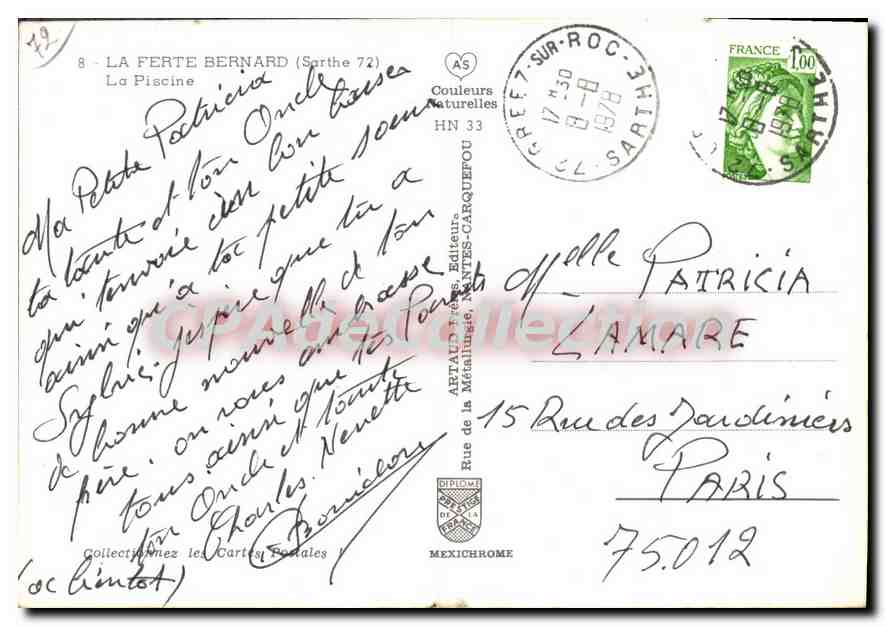 72
8 - LA FERTE BERNARD (Sarthe 72)
La Piscine
AS
Couleurs
Naturelles
HN 33
Ma Petite Patricia
ta tante et ton Oncle
qui t'envoie un bon baiser
ainsi qu'a ta petite soeur
Sylvie. j'espère que tu a
de bonne nouvelle de ton
père. on vous embrasse
tous ainsi que tes Parents
ton Oncle et tante
Charles. Nenette
(a bientot)
Collectionnez les Cartes Postales !
ARTAUD Frères, Editeur
Rue de la Métallurgie, NANTES-CARQUEFOU
DIPLOME
PRESTIGE
DE LA
FRANCE
MEXICHROME
SUR-ROC
17 H 30
8 - 8
1978
72 - SARTHE
FRANCE
1,00
17 H 30
8 - 8
1978
72 - SARTHE
Melle PATRICIA
LAMARE
15 Rue des Jardiniers
PARIS
75.012
CPAdeCollection